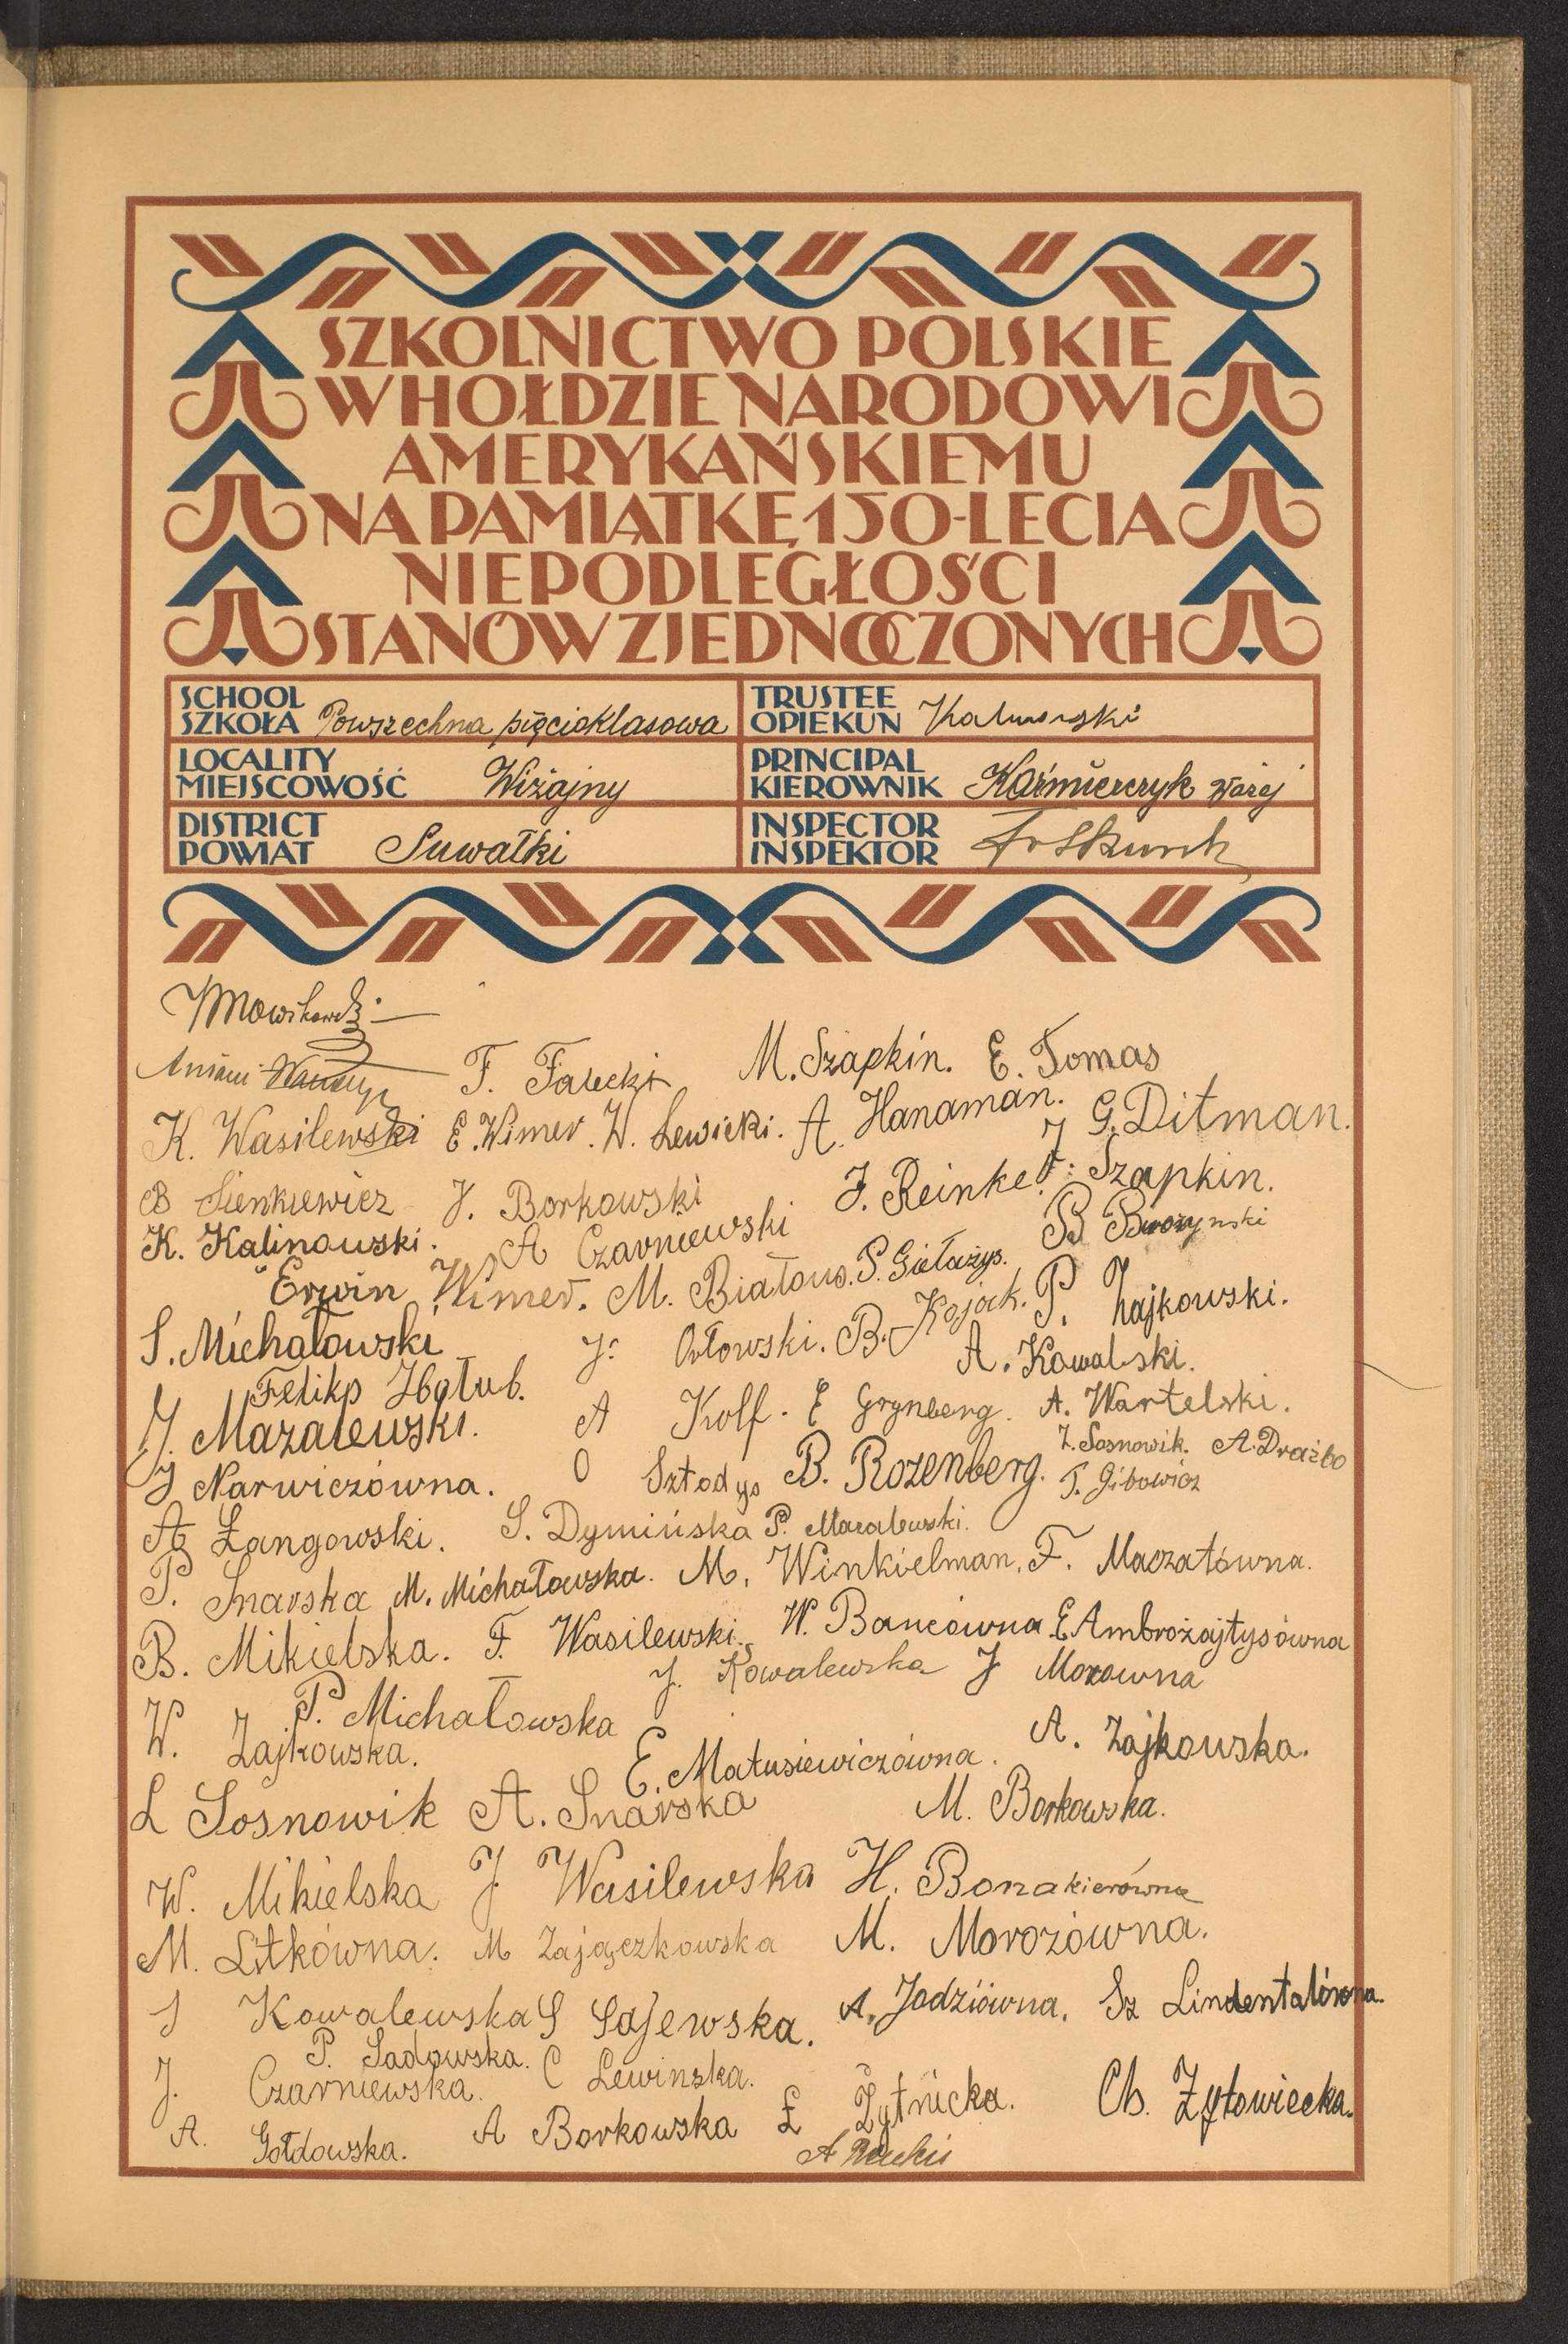 SZKOLNICTWO POLSKIE
W HOŁDZIE NARODOWI
AMERYKAŃSKIEMU
NA PAMIĄTKĘ 150-LECIA
NIEPODLEGŁOŚCI
STANÓW ZJEDNOCZONYCH
SCHOOL
SZKOŁA Powszechna pięcioklasowa
TRUSTEE
OPIEKUN
LOCALITY
MIEJSCOWOŚĆ Wiżajny
PRINCIPAL
KIEROWNIK Kaźmierczyk
DISTRICT
POWIAT Suwałki
INSPECTOR
INSPEKTOR
F. Falecki M. Szapkin. E. Tomas
K. Wasilewski E. Wimer. W. Lewicki. A. Hanaman. J G. Ditman.
B Sienkiewicz J. Borkowski J. Reinke J. Szapkin.
K. Kalinowski. A Czarniewski B
Erwin Wimer. M. Białous. P. Giełażys.
S. Michałowski J. Orłowski. B. Kojack. P. Zajkowski.
Feliks Hołub. A. Kowalski.
J. Mazalewski. A Kolf. E Grynberg. A. Wartelski.
J Narwiczówna. O Sztodys B. Rozenberg. Z. Sosnowik. A. Drażbo
T. Gibowicz
A Łangowski. S. Dymińska P. Mazalewski.
P. Snarska M. Michałowska. M. Winkielman. F. Maczatówna.
B. Mikielska. F. Wasilewski. W. Bancówna E Ambrożajtysówna
P. Michałowska J. Kowalewska J Morowna
W. Zajkowska. E. Matusiewiczówna. A. Zajkowska.
L Sosnowik A. Snarska M. Borkowska.
W. Mikielska J. Wasilewska H. Bonakierówna
M. Litkówna. M Zajączkowska M. Morozówna.
J Kowalewska S Sajewska. A. Jodziówna. Sz Lindentalówna.
P. Sadowska. C Lewinska.
J. Czarniewska. Ł Żytnicka. Ch. Żytowiecka.
A. Gołdowska. A Borkowska